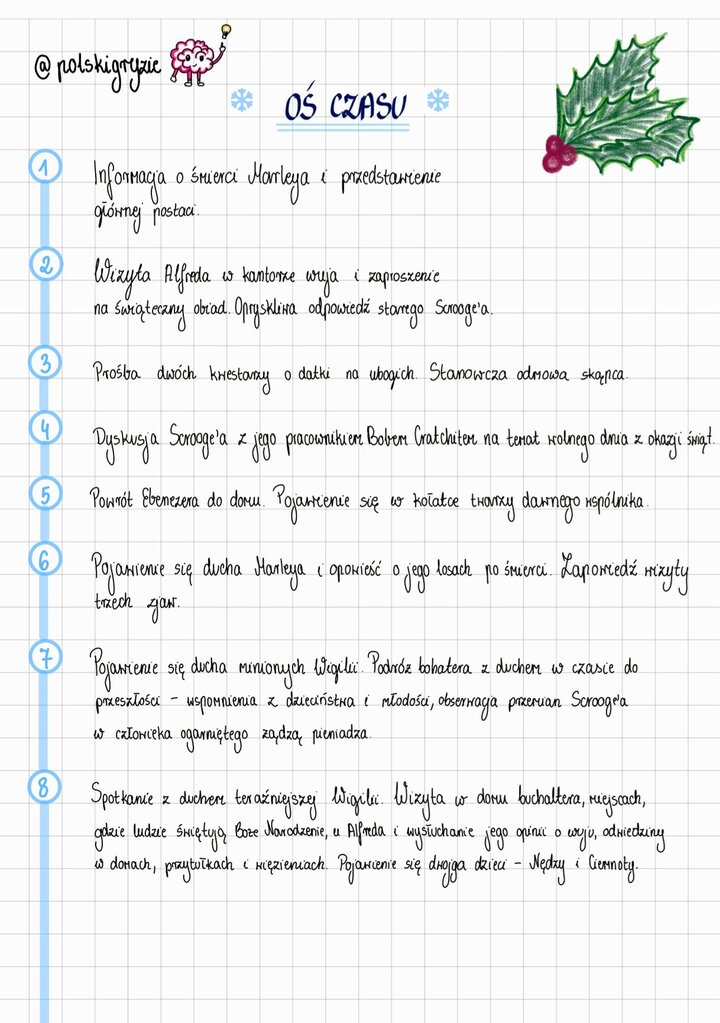 @polskigryzie
OŚ CZASU
1
Informacja o śmierci Marleya i przedstawienie
głównej postaci.
2
Wizyta Alfreda w kantorze wuja i zaproszenie
na świąteczny obiad. Opryskliwa odpowiedź starego Scrooge'a.
3
Prośba dwóch kwestarzy o datki na ubogich. Stanowcza odmowa skąpca.
4
Dyskusja Scrooge'a z jego pracownikiem Bobem Cratchitem na temat wolnego dnia z okazji świąt.
5
Powrót Ebenezera do domu. Pojawienie się w kołatce twarzy dawnego wspólnika.
6
Pojawienie się ducha Marleya i opowieść o jego losach po śmierci. Zapowiedź wizyty
trzech zjaw.
7
Pojawienie się ducha minionych Wigilii. Podróż bohatera z duchem w czasie do
przeszłości – wspomnienia z dzieciństwa i młodości, obserwacja przemian Scrooge'a
w człowieka ogarniętego żądzą pieniądza.
8
Spotkanie z duchem teraźniejszej Wigilii. Wizyta w domu buchaltera, miejscach,
gdzie ludzie świętują Boże Narodzenie, u Alfreda i wysłuchanie jego opinii o wuju, odwiedziny
w domach, przytułkach i więzieniach. Pojawienie się dwojga dzieci – Nędzy i Ciemnoty.